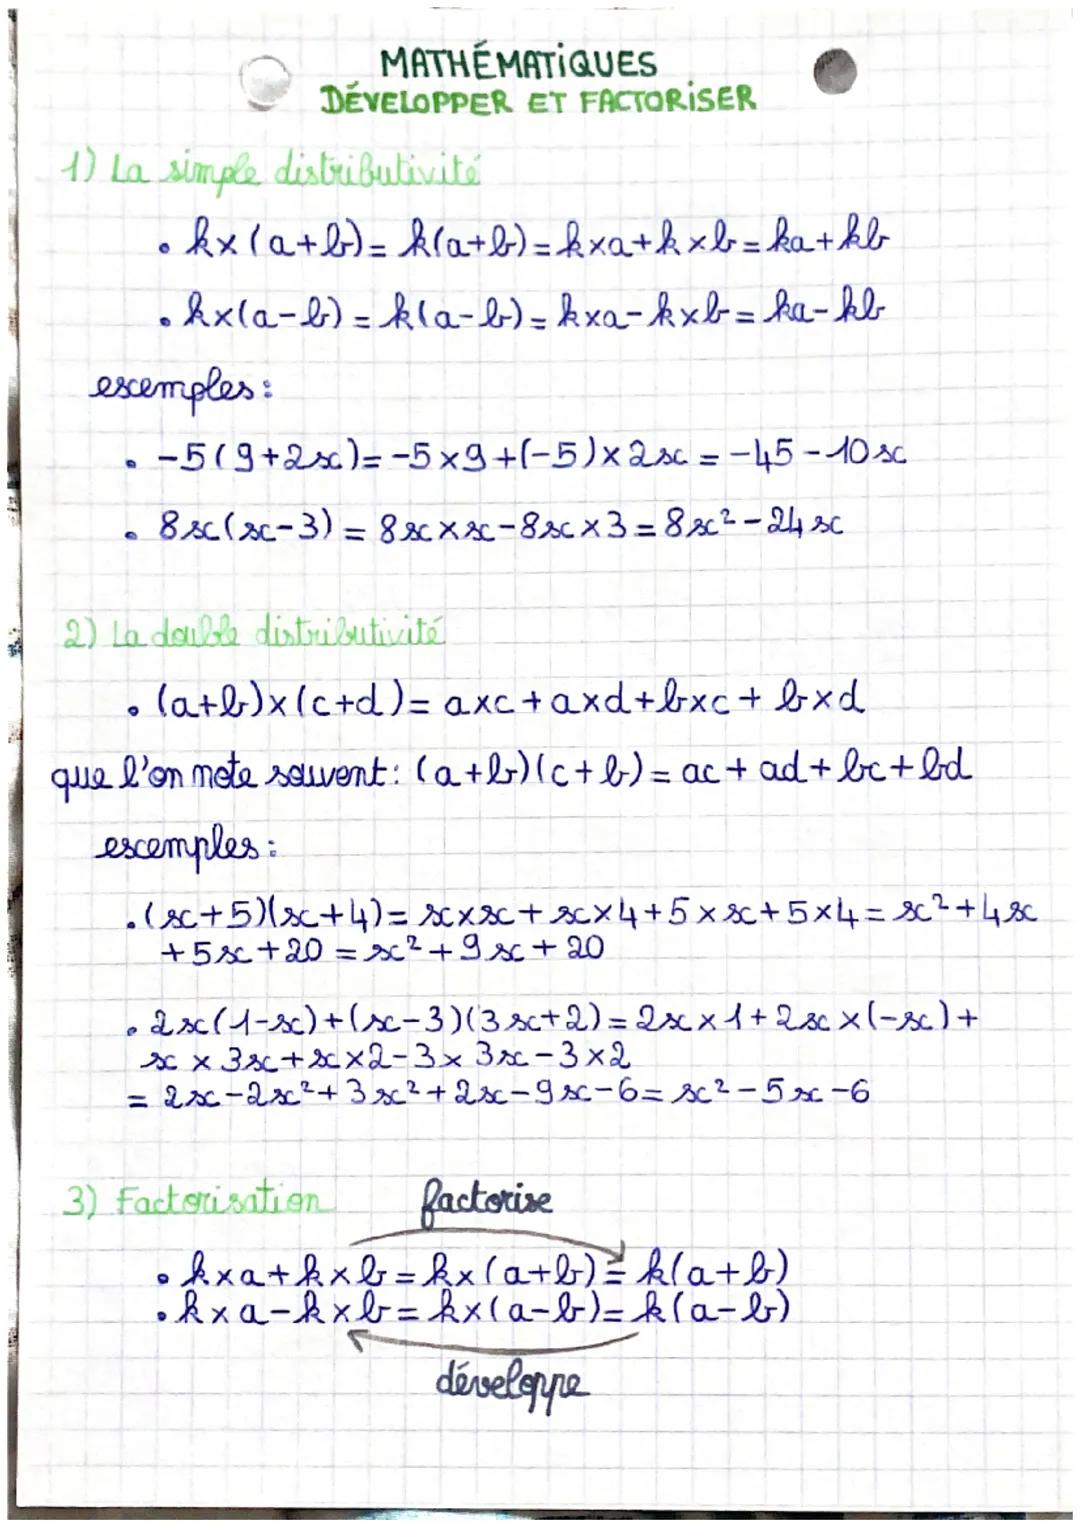 MATHÉMATIQUES
DÉVELOPPER ET FACTORISER
1) La simple distributivité
• k×(a+b)= k(a+b)=k×a+k×b=ka+kb
• k×(a-b)=k(a-b)=k×a-k×b=ka-kb
exemples:
• -5(9+2x)=-5×9+(-5)×2x=-45-10x
• 8x(x-3)=8x×x-8x×3=8x²-24x
2) La double distributivité
• (a+b)×(c+d)= a×c+a×d+b×c+ b×d
que l'on note souvent: (a+b)(c+b)=ac+ad+bc+bd
exemples:
• (x+5)(x+4)= x×x+x×4+5×x+5×4= x²+4x
+5x+20=x²+9x+20
• 2x(1-x)+(x-3)(3x+2)=2x×1+2x×(-x)+
x×3x+x×2-3×3x-3×2
= 2x-2x²+3x²+2x-9x-6= x²-5x-6
3) Factorisation factorise
• k×a+k×b=k×(a+b)=k(a+b)
• k×a-k×b=k×(a-b)=k(a-b)
développe